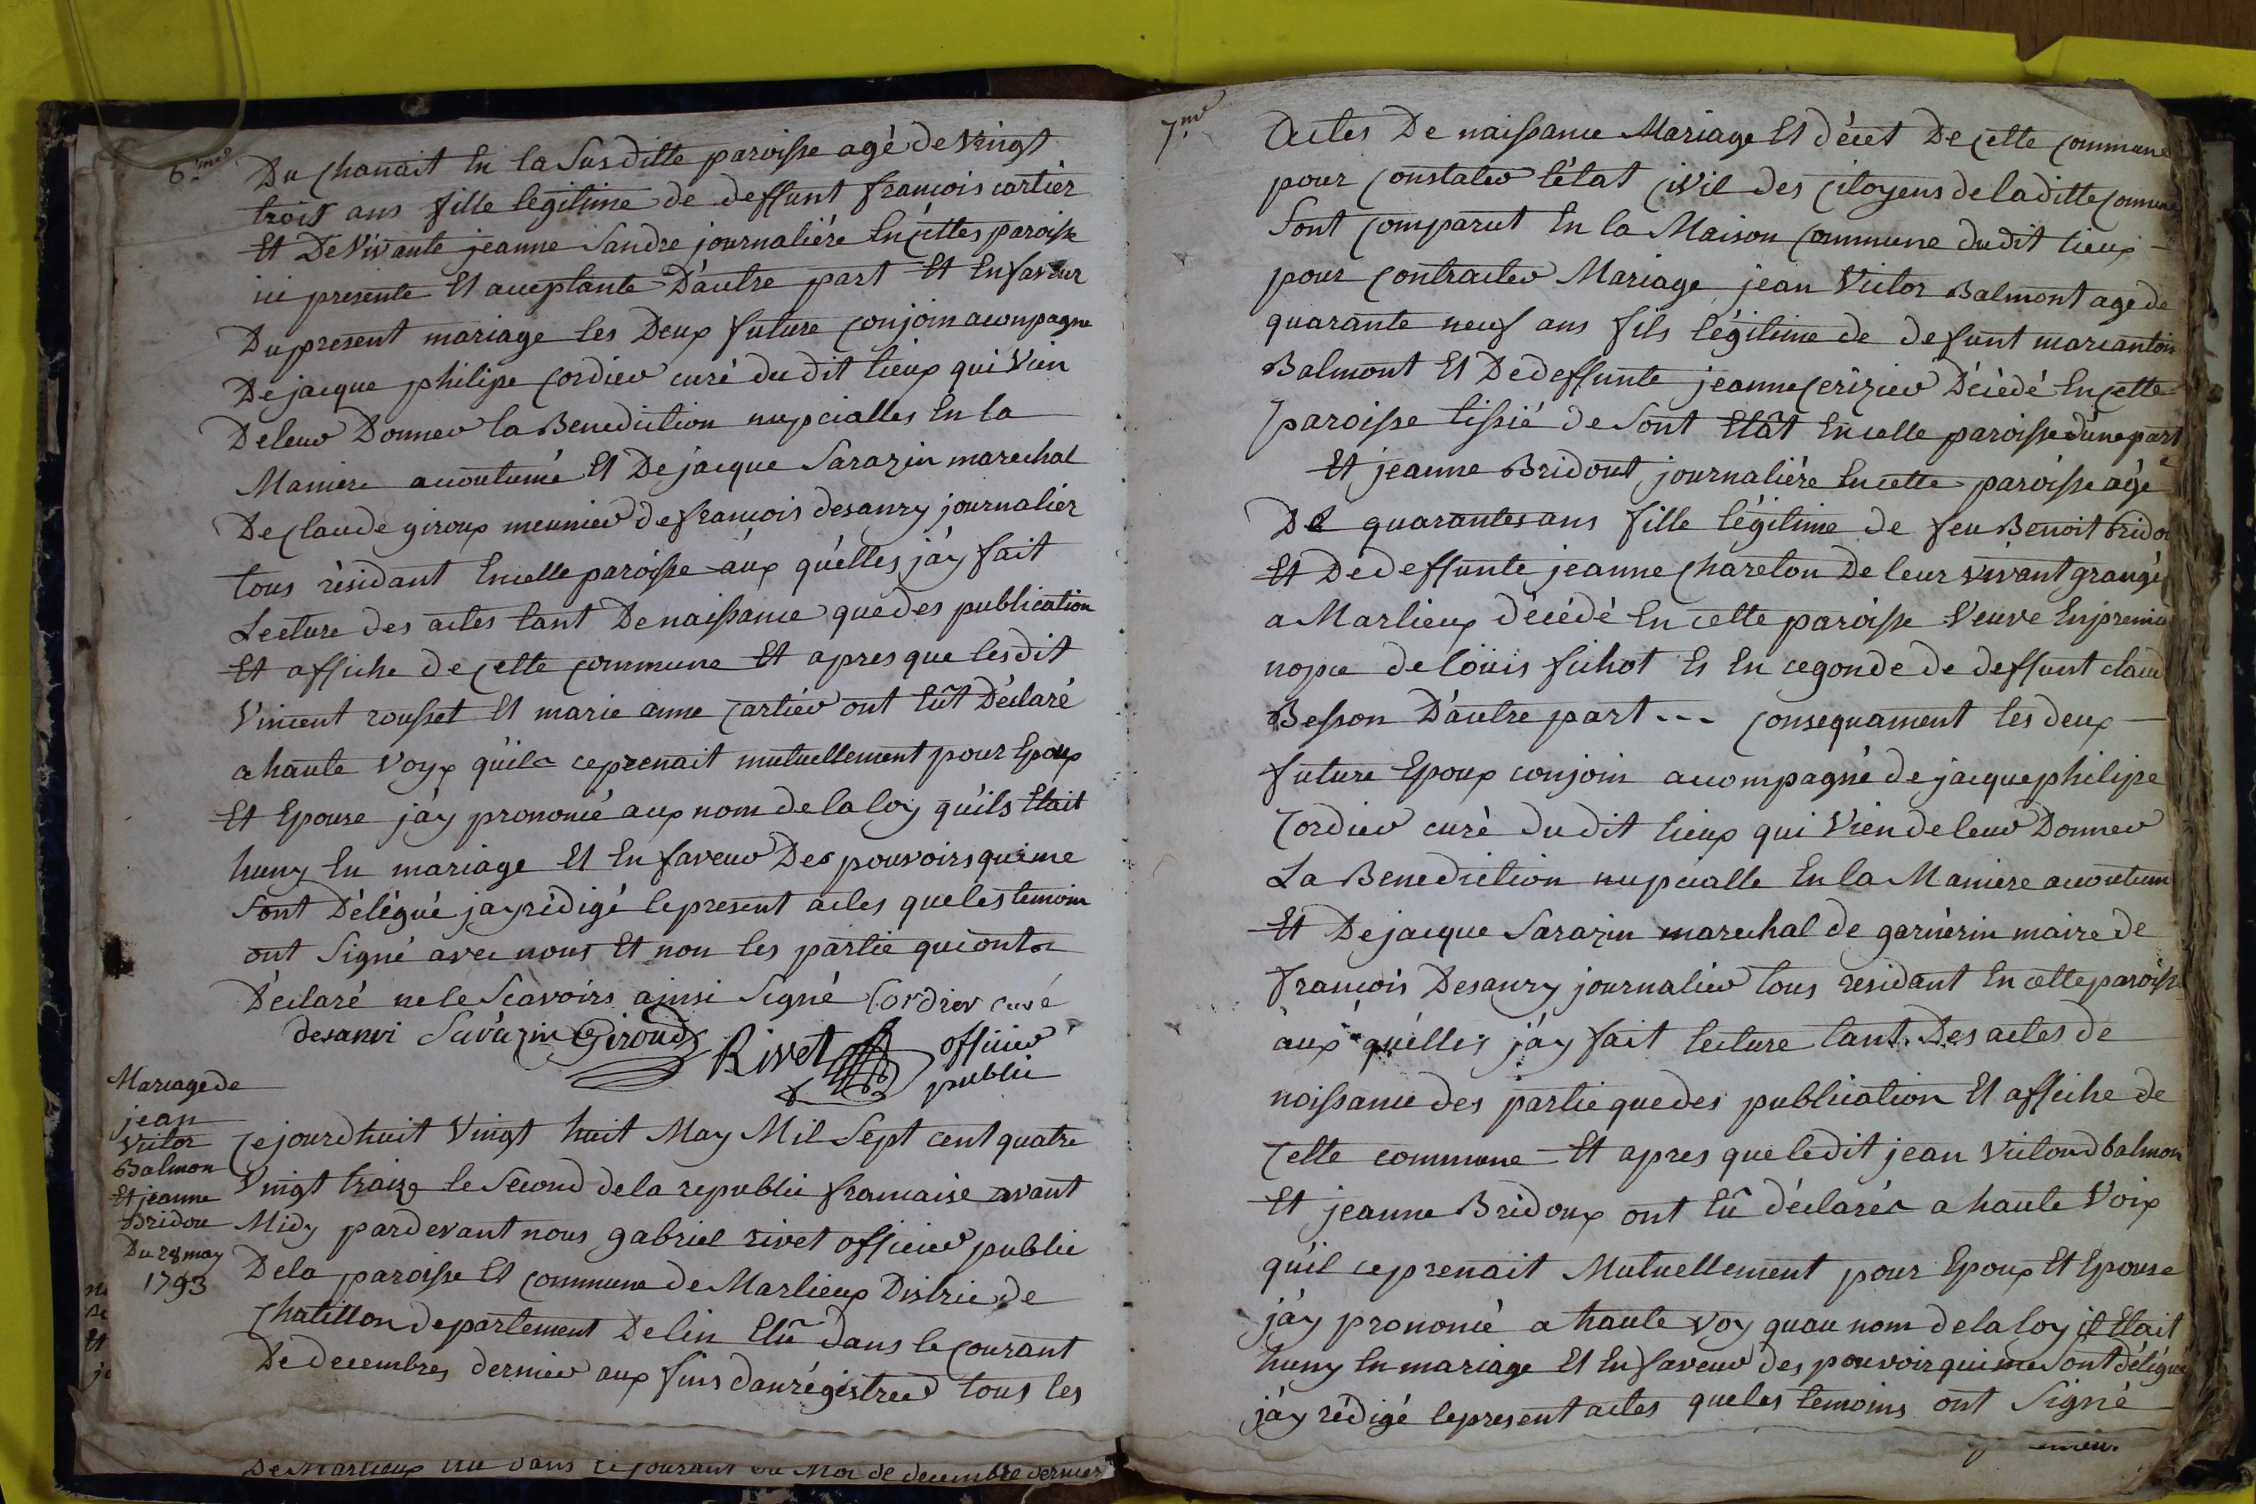 6.me
Du Chanait En la Susditte paroisse agé de Vingt
trois ans fille legitime de deffunt francois cartier
Et De Vivante jeanne Sandre journaliére En cettes paroisse
ici presente Et aceptante D'autre part Et En faveur
Du present mariage les Deux future conjoin aconpagne
De jacque philipe Cordier curé du dit lieux qui Vien
De leur Donner la Benediction nupcialles En la
Maniere acoutumé Et De jacque Sarazin marechal
De Claude giroux meunier de francois desanry journalier
tous résidant En celle paroisse aux quélles j'ay fait
Lecture des actes tant De naissance que des publication
Et affiche de cette commune Et apres que lesdit
Vincent rousset Et marie anne Cartier ont Eût Déclaré
a haute Voyx qu'ils ce prenait mutuellement pour Epoux
Et Epouse j'ay prononcé aux nom de la loy qu'ils Etait
huny En mariage Et En faveur Des pouvoirs qui me
Sont Délégué jay rédigé le present actes que les temoin
ont Signé avec nous Et non les partie qui ont
Déclaré ne le Scavoirs ainsi Signé Cordier curé
desanvi Sarazin Giroud Rivet officier
public
Mariage de
jean
Victor
Balmon
Et jeanne
Bridou
Du 28 may
1793
Cejourdhuit Vingt huit May Mil Sept cent quatre
Vingt traize le Second de la republic francaise avant
Midy pardevant nous gabriel rivet officier public
De la paroisse Et commune de Marlieux Distric de
Chatillon departement De lin Elû dans le Courant
De decembres dernier aux fins d'anrégistrer tous les
De Marlieux Elu dans le courant du Moi de decembre dernier
7.me
Actes De naissance Mariage Et décet De cette commune
pour Constater l'état Civil des Citoyens de laditte Commune
Sont Comparut En la Maison Commune dudit lieux
pour Contracter Mariage jean Victor Balmont age de
quarante neuf ans fils légitime de defunt marcantoin
Balmont Et De deffunte jeanne Cerizier Décédé En cette
paroisse tissié de Sont Etât En celle paroisse d'une part
Et jeanne Bridout journaliére En cette paroisse agé
De quarantes ans fille légitime de feu Benoit brido
Et De deffunte jeanne Chareton De leur vivant grangé
a Marlieux décédé En cette paroisse Veuve En premie
nopce de Louis fichot Es En cegonde de deffunt claud
Besson D'autre part --- Consequament les deux
future Epoux conjoin acompagné de jacque philipe
Cordier curé du dit lieux qui Vien de leur Donner
La Benediction nupcialle En la Maniere acoutum
Et De jacque Sarazin marechal de garnérin maire de
francois Desanry journalier tous residant En cette paroisse
aux quélles j'ay fait lecture tant Des actes de
noissance des partie que des publication Et affiche de
Cette commune Et apres que ledit jean Victord balmon
Et jeanne Bridoux ont Eû déclarés a haute Voix
qu'il ce prenait Mutuellement pour Epoux Et Epouse
j'ay prononcé a haute Voy quau nom de la loy il Etait
huny En mariage Et En faveur des pouvoir qui me Sont délégué
j'ay rédigé le present actes que les temoins ont Signé